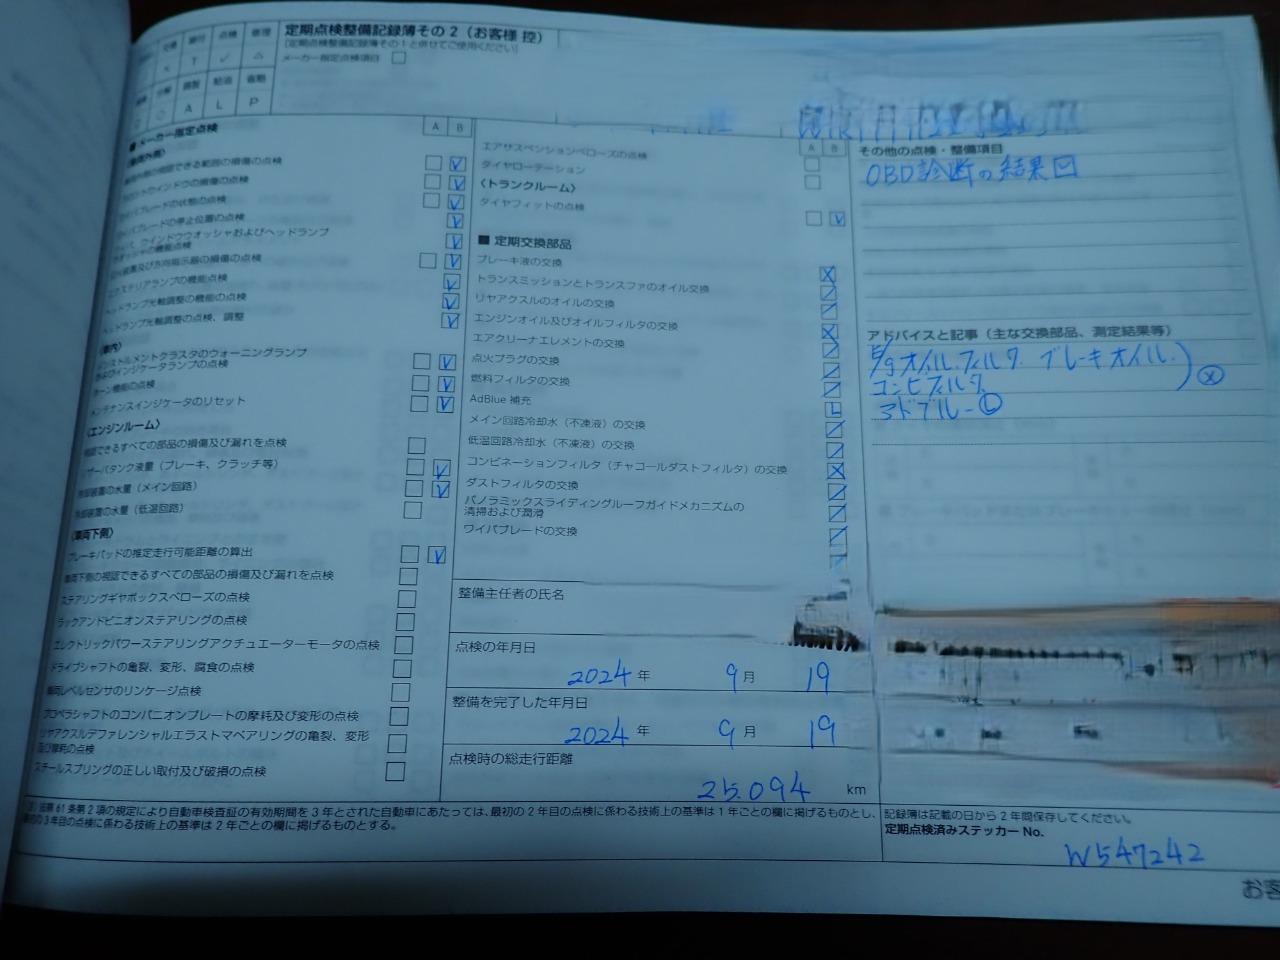 定期点検整備記録簿その2（お客様 控）
（定期点検整備記録簿その1と併せてご使用ください）
メーカー指定点検項目
交換 締付 点検 修理
× T ✓ △
調整 給油 省略
A L P
■ メーカー指定点検
A B
視認できる範囲の損傷の点検
ウインドウの損傷の点検
ブレードの状態の点検
ブレードの停止位置の点検
ウインドウウオッシャおよびヘッドランプ
の機能点検
及び方向指示器の損傷の点検
エクステリアランプの機能点検
ヘッドランプ光軸調整の機能の点検
ヘッドランプ光軸調整の点検、調整
インストルメントクラスタのウォーニングランプ
およびインジケータランプの点検
ホーン機能の点検
メンテナンスインジケータのリセット
〈エンジンルーム〉
視認できるすべての部品の損傷及び漏れを点検
リザーバタンク液量（ブレーキ、クラッチ等）
冷却装置の水量（メイン回路）
冷却装置の水量（低温回路）
〈車両下側〉
ブレーキパッドの推定走行可能距離の算出
車両下側の視認できるすべての部品の損傷及び漏れを点検
ステアリングギヤボックスベローズの点検
ラックアンドピニオンステアリングの点検
エレクトリックパワーステアリングアクチュエーターモータの点検
ドライブシャフトの亀裂、変形、腐食の点検
車両レベルセンサのリンケージ点検
プロペラシャフトのコンパニオンプレートの摩耗及び変形の点検
リヤアクスルデファレンシャルエラストマベアリングの亀裂、変形
及び摩耗の点検
スチールスプリングの正しい取付及び破損の点検
A B
エアサスペンションベローズの点検
タイヤローテーション
〈トランクルーム〉
タイヤフィットの点検
■ 定期交換部品
ブレーキ液の交換
トランスミッションとトランスファのオイル交換
リヤアクスルのオイルの交換
エンジンオイル及びオイルフィルタの交換
エアクリーナエレメントの交換
点火プラグの交換
燃料フィルタの交換
AdBlue 補充
メイン回路冷却水（不凍液）の交換
低温回路冷却水（不凍液）の交換
コンビネーションフィルタ（チャコールダストフィルタ）の交換
ダストフィルタの交換
パノラミックスライディングルーフガイドメカニズムの
清掃および潤滑
ワイパブレードの交換
整備主任者の氏名
点検の年月日
2024 年 9 月 19
整備を完了した年月日
2024 年 9 月 19
点検時の総走行距離
25.094 km
その他の点検・整備項目
OBD診断の結果
アドバイスと記事（主な交換部品、測定結果等）
E/gオイル.フィルタ. ブレーキオイル.
コンビフィルタ.
アドブルーⓁ
ⓧ
61条第2項の規定により自動車検査証の有効期間を3年とされた自動車にあたっては、最初の2年目の点検に係わる技術上の基準は1年ごとの欄に掲げるものとし、
最初の3年目の点検に係わる技術上の基準は2年ごとの欄に掲げるものとする。
記録簿は記載の日から2年間保存してください。
定期点検済みステッカー No.
W547242
お客